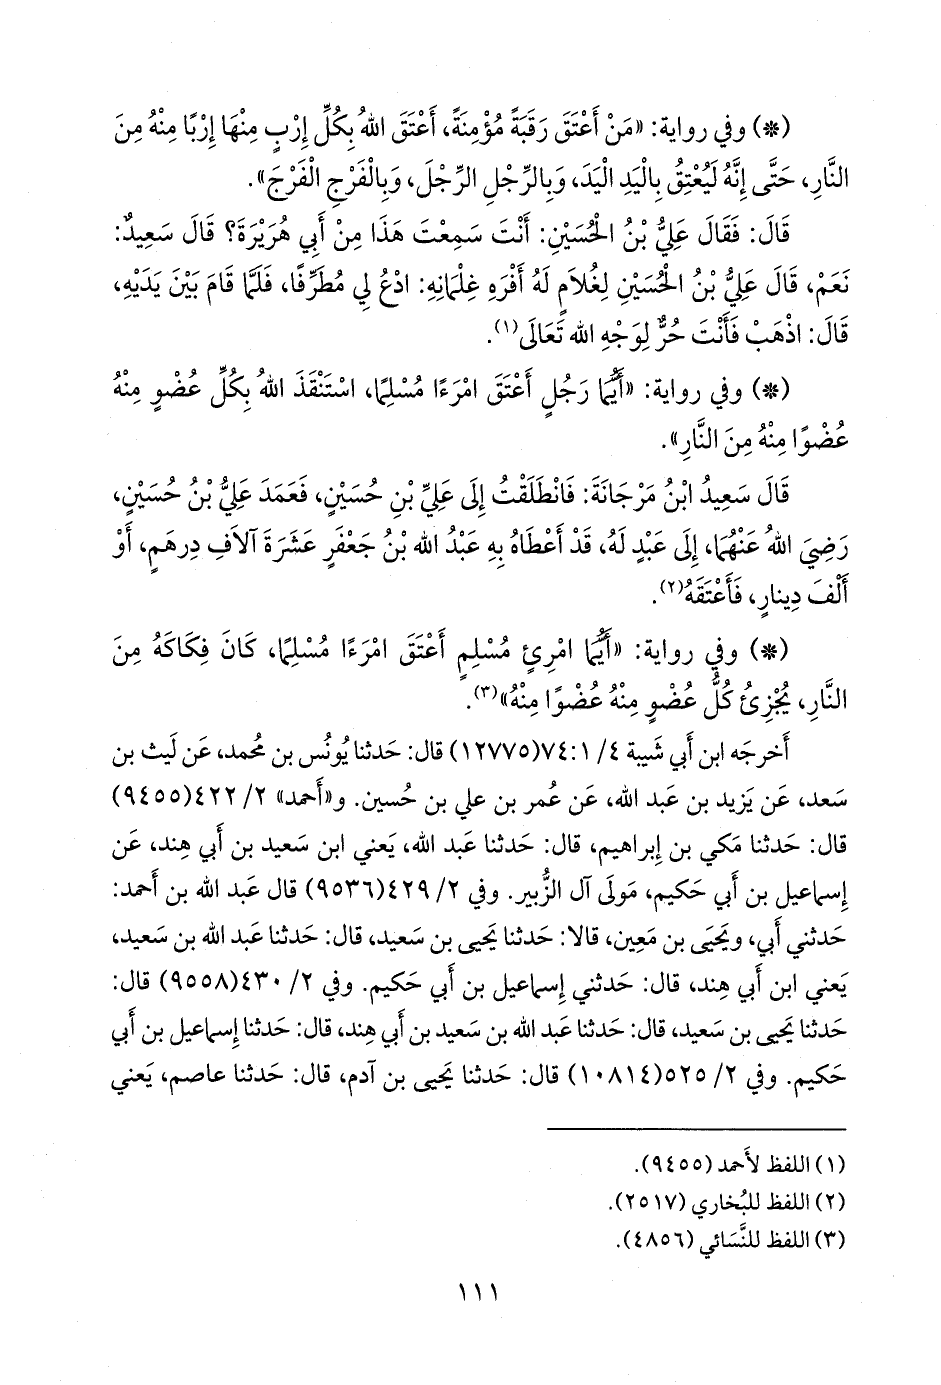 (*) وفي رواية: «مَنْ أَعْتَقَ رَقَبَةً مُؤْمِنَةً، أَعْتَقَ اللهُ بِكُلِّ إِرْبٍ مِنْهَا إِرْبًا مِنْهُ مِنَ
النَّارِ، حَتَّى إِنَّهُ لَيُعْتِقُ بِالْيَدِ الْيَدَ، وَبِالرِّجْلِ الرِّجْلَ، وَبِالْفَرْجِ الْفَرْجَ».
قَالَ: فَقَالَ عَلِيُّ بْنُ الْحُسَيْنِ: أَنْتَ سَمِعْتَ هَذَا مِنْ أَبِي هُرَيْرَةَ؟ قَالَ سَعِيدٌ:
نَعَمْ، قَالَ عَلِيُّ بْنُ الْحُسَيْنِ لِغُلاَمٍ لَهُ أَفْرَهِ غِلْمَانِهِ: ادْعُ لِي مُطَرِّفًا، فَلَمَّا قَامَ بَيْنَ يَدَيْهِ،
قَالَ: اذْهَبْ فَأَنْتَ حُرٌّ لِوَجْهِ الله تَعَالَى(١).
(*) وفي رواية: «أَيُّمَا رَجُلٍ أَعْتَقَ امْرَءًا مُسْلِمًا، اسْتَنْقَذَ اللهُ بِكُلِّ عُضْوٍ مِنْهُ
عُضْوًا مِنْهُ مِنَ النَّارِ».
قَالَ سَعِيدُ ابْنُ مَرْجَانَةَ: فَانْطَلَقْتُ إِلَى عَلِيِّ بْنِ حُسَيْنٍ، فَعَمَدَ عَلِيُّ بْنُ حُسَيْنٍ،
رَضِيَ اللهُ عَنْهُمَا، إِلَى عَبْدٍ لَهُ، قَدْ أَعْطَاهُ بِهِ عَبْدُ الله بْنُ جَعْفَرٍ عَشَرَةَ آلاَفِ دِرهَمٍ، أَوْ
أَلْفَ دِينارٍ، فَأَعْتَقَهُ(٢).
(*) وفي رواية: «أَيُّمَا امْرِئٍ مُسْلِمٍ أَعْتَقَ امْرَءًا مُسْلِمًا، كَانَ فِكَاكَهُ مِنَ
النَّارِ، يُجْزِئُ كُلُّ عُضْوٍ مِنْهُ عُضْوًا مِنْهُ»(٣).
أَخرجَه ابن أَبي شَيبة ٤/ ١: ٧٤(١٢٧٧٥) قال: حَدثنا يُونُس بن مُحمد، عَن لَيث بن
سَعد، عَن يَزيد بن عَبد الله، عَن عُمر بن علي بن حُسين. و«أَحمد» ٢/ ٤٢٢(٩٤٥٥)
قال: حَدثنا مَكي بن إِبراهيم، قال: حَدثنا عَبد الله، يَعني ابن سَعيد بن أَبي هِند، عَن
إِسماعيل بن أَبي حَكيم، مَولَى آل الزُّبير. وفي ٢/ ٤٢٩(٩٥٣٦) قال عَبد الله بن أَحمد:
حَدثني أَبي، ويَحيَى بن مَعِين، قالا: حَدثنا يَحيى بن سَعيد، قال: حَدثنا عَبد الله بن سَعيد،
يَعني ابن أَبي هِند، قال: حَدثني إِسماعيل بن أَبي حَكيم. وفي ٢/ ٤٣٠(٩٥٥٨) قال:
حَدثنا يَحيى بن سَعيد، قال: حَدثنا عَبد الله بن سَعيد بن أَبي هِند، قال: حَدثنا إِسماعيل بن أَبي
حَكيم. وفي ٢/ ٥٢٥(١٠٨١٤) قال: حَدثنا يَحيى بن آدم، قال: حَدثنا عاصم، يَعني
(١) اللفظ لأَحمد (٩٤٥٥).
(٢) اللفظ للبُخاري (٢٥١٧).
(٣) اللفظ للنَّسَائي (٤٨٥٦).
١١١